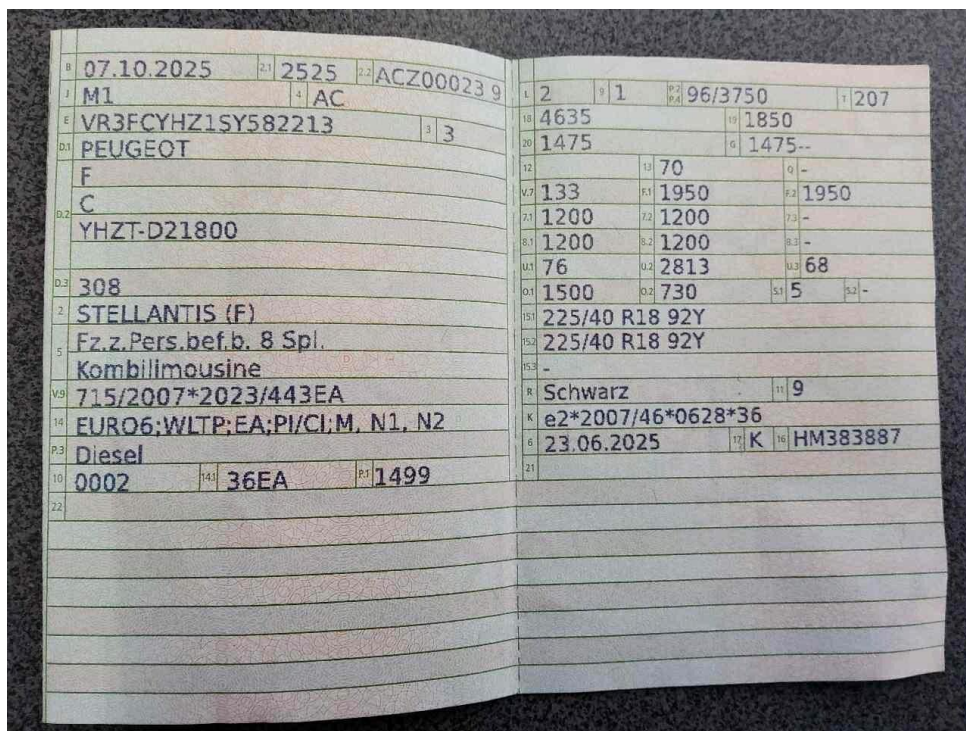 B 07.10.2025 2.1 2525 2.2 ACZ00023 9
J M1 4 AC
E VR3FCYHZ1SY582213 3 3
D.1 PEUGEOT
F
D.2 C
YHZT-D21800
D.3 308
2 STELLANTIS (F)
5 Fz.z.Pers.bef.b. 8 Spl.
Kombilimousine
V.9 715/2007*2023/443EA
14 EURO6;WLTP;EA;PI/CI;M, N1, N2
P.3 Diesel
10 0002 14.1 36EA P.1 1499
22
L 2 9 1 P.2 P.4 96/3750 T 207
18 4635 19 1850
20 1475 G 1475--
12 13 70 Q -
V.7 133 F.1 1950 F.2 1950
7.1 1200 7.2 1200 7.3 -
8.1 1200 8.2 1200 8.3 -
U.1 76 U.2 2813 U.3 68
O.1 1500 O.2 730 S.1 5 S.2 -
15.1 225/40 R18 92Y
15.2 225/40 R18 92Y
15.3 -
R Schwarz 11 9
K e2*2007/46*0628*36
6 23.06.2025 17 K 16 HM383887
21